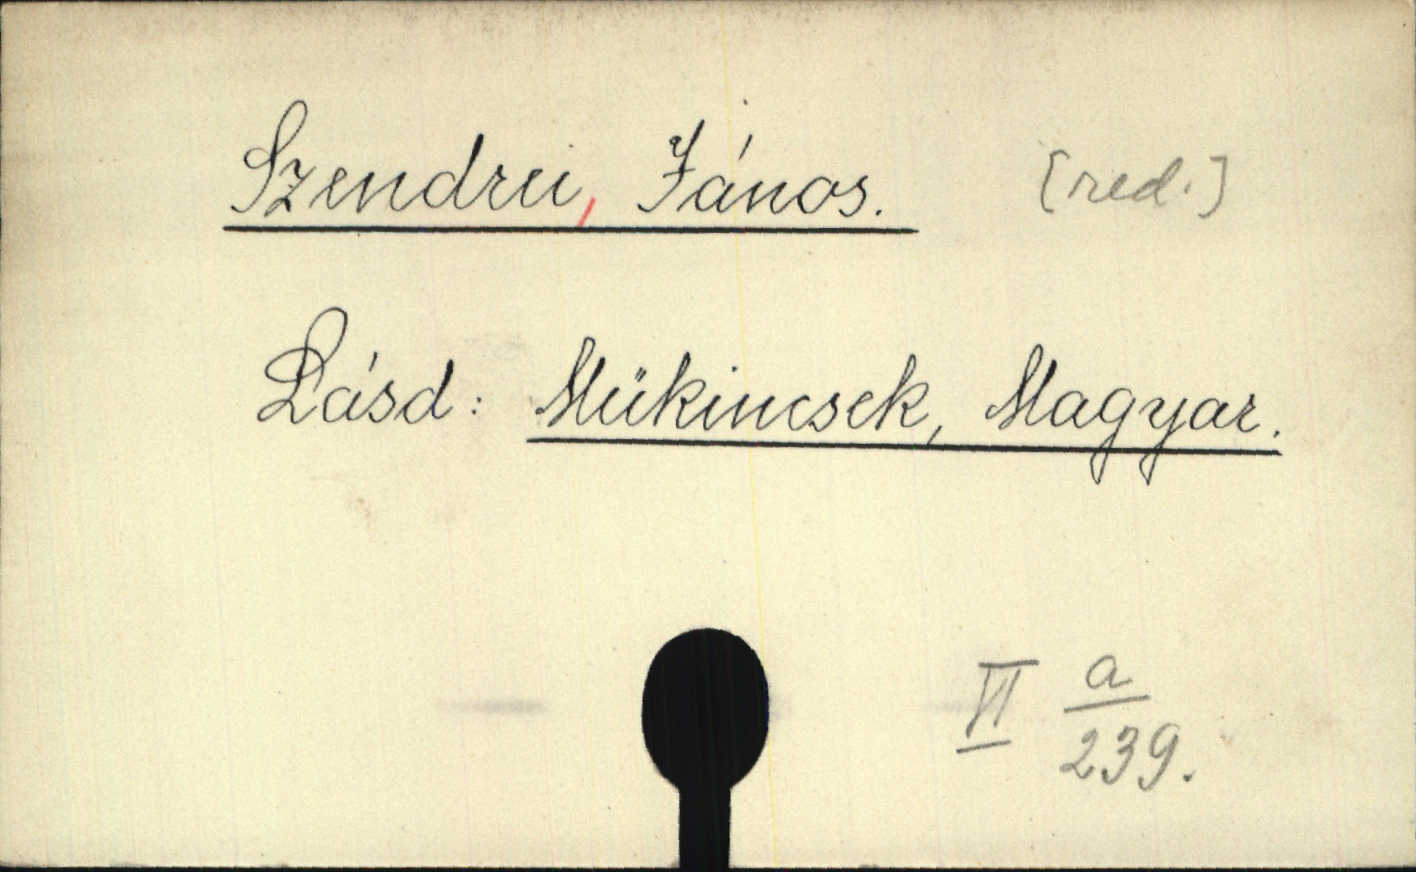 Szendrei, János. [red.]
Lásd: Műkincsek, Magyar.
VI a/239.